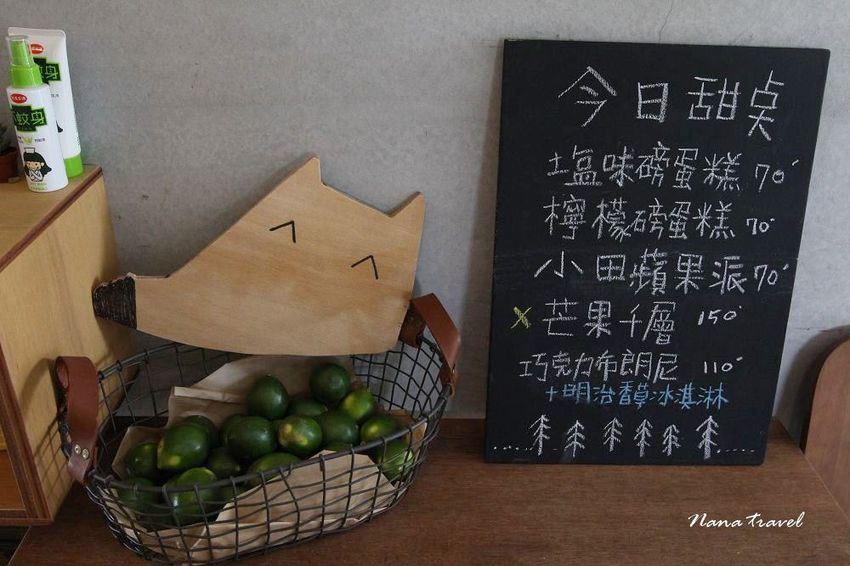 今日甜桌
塩味磅蛋糕 70
檸檬磅蛋糕 70
小田蘋果派 70
x 芒果千層 150
巧克力布朗尼 110
+明治香草冰淇淋
蚊身
Nana Travel